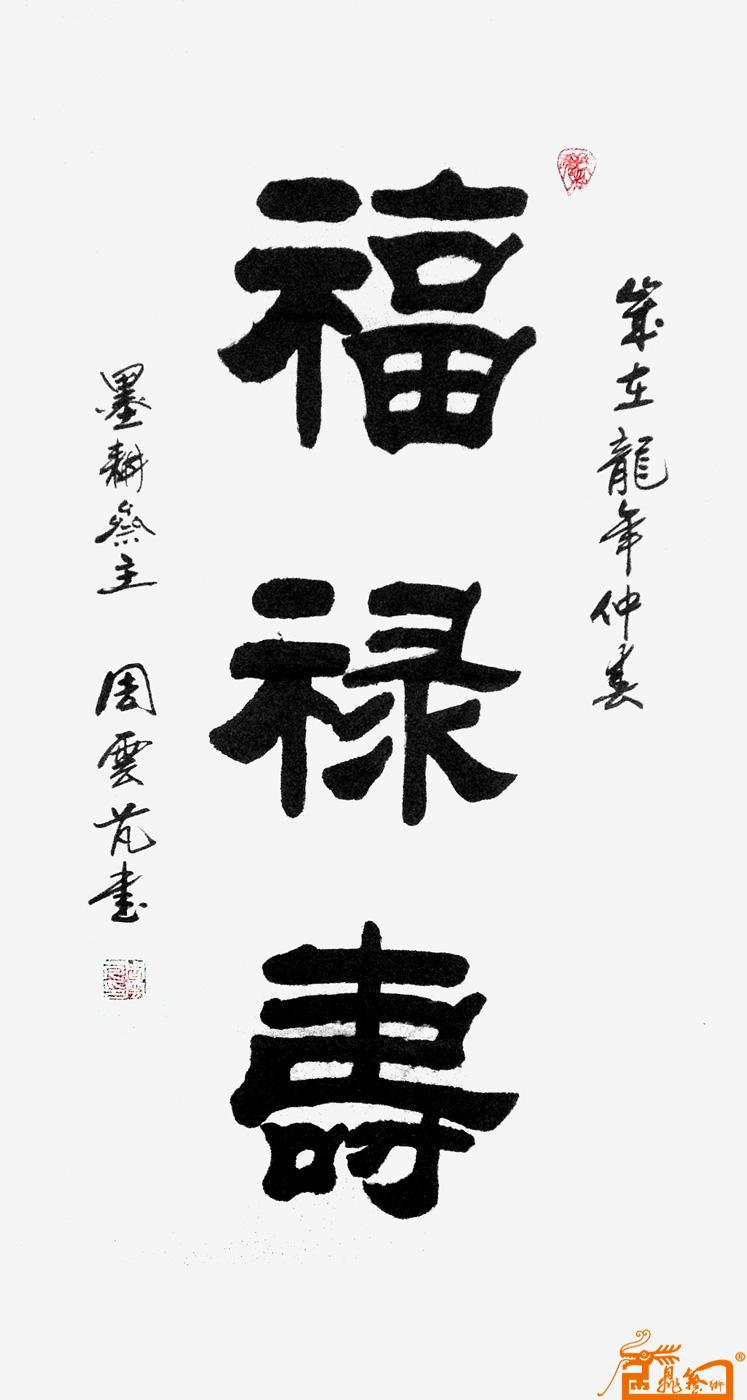 歲在龍年仲春
福禄壽
墨耕齋主 周雲芃書